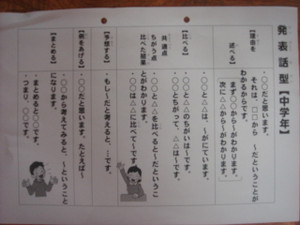 発表話型【中学年】
【理由を述べる】
・○○だと思います。
それは、□□から ～だということが
わかるからです。
まず○○から～がわかります。
次に△△から～がわかります。
【比べる】
・○○と△△は、～がにています。
・○○と△△のちがいは～です。
○○とちがって、△△は～です。
共通点
ちがう点
比べた結果
・○○と△△を比べると～だということがわかります。
・○○は△△に比べて～です
【予想する】
・もし～だと考えると、…です。
【例をあげる】
・○○だと思います。たとえば～
【まとめる】
・○○から考えてみると、～ということ
になります。
・まとめると○○です。
・つまり、○○です。